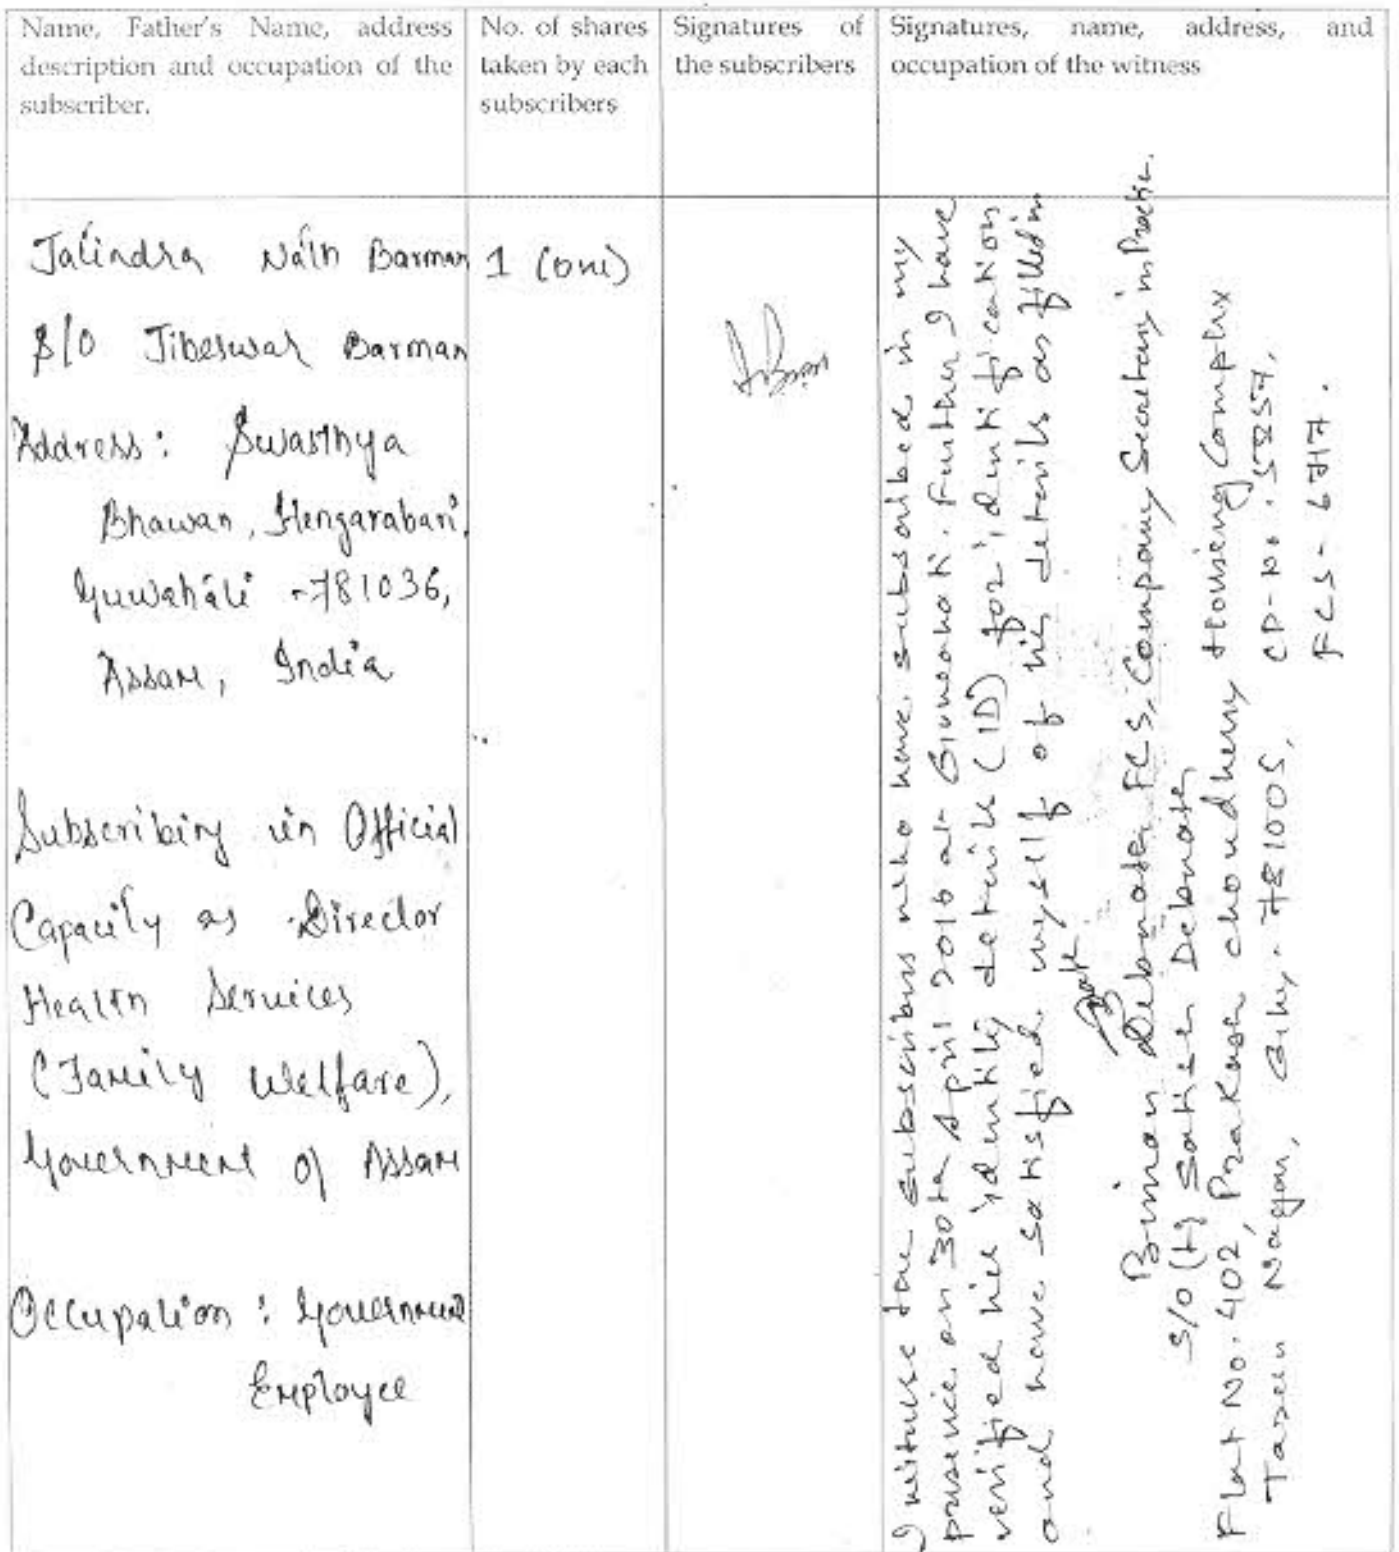 Name, Father's Name, address
description and occupation of the
subscriber.
No. of shares
taken by each
subscribers
Signatures of
the subscribers
Signatures, name, address, and
occupation of the witness
Jatindra Nath Barman
S/O Jibeswar Barman
Address: Swasthya
Bhawan, Hengarabari,
Guwahati - 781036,
Assam, India
Subscribing in Official
Capacity as Director
Health Services
(Family Welfare),
Government of Assam
Occupation : Government
Employee
1 (one)
I witness the subscribers who have subscribed in my
presence on 30th April 2016 at Guwahati. Further I have
verified his identity details (ID) for identification
and have satisfied myself of his details as filled in
Biman Debnath, FCS, Company Secretary in Practice.
S/O (Lt) Satish Debnath
Flat No. 402, Prakash Choudhury Housing Complex
Tarun Nagar, Ghy - 781005, CP-No. 5857,
FCS - 6717.